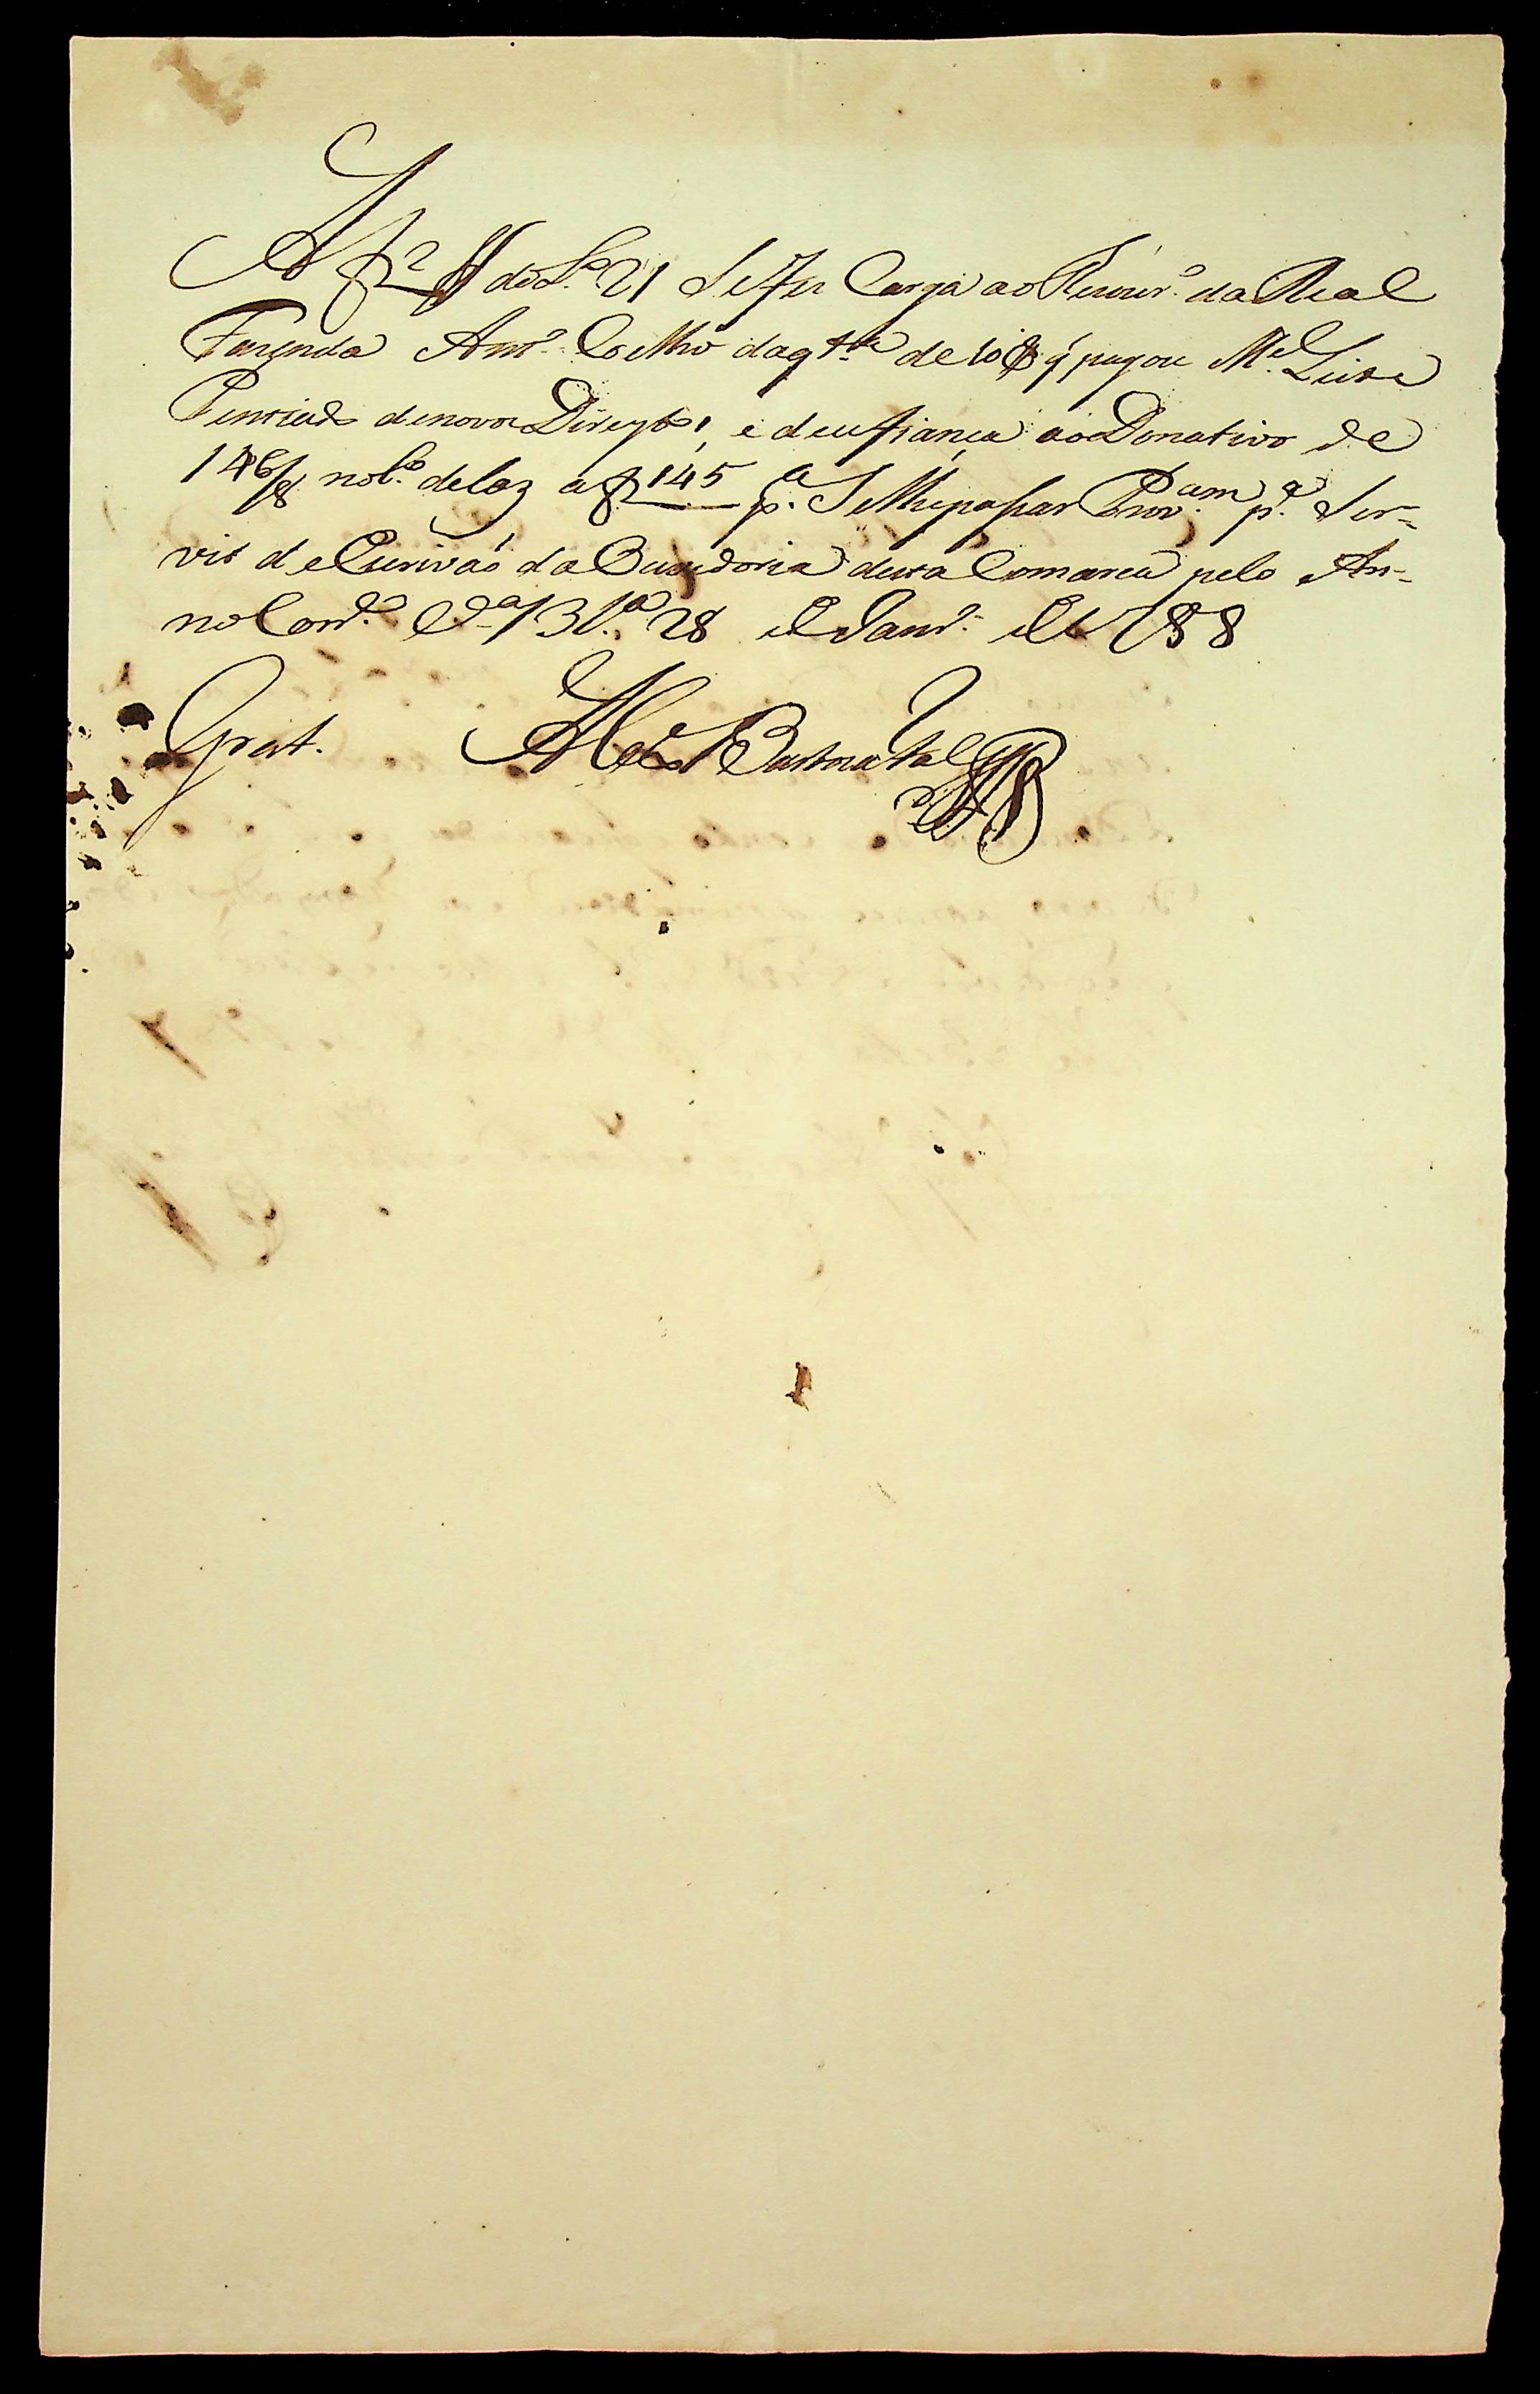 A f 2 do L.º 21 Se fez Carga ao Thezour.º da Real
Fazenda Ant.º Coelho da q.tia de 10/8 q̃ pagou M.el Leite
Penteado de novos Direytos, e deu fiança ao Donativo de
146/8 no L.º delas a f 145 p.a Se lhe passar Prov.am p.a Ser-
vir de Escrivaõ da Ouvidoria desta Comarca pelo An-
no Corr.e V.a B.a 28 de Janr.º de 1788
Grat. Bastos